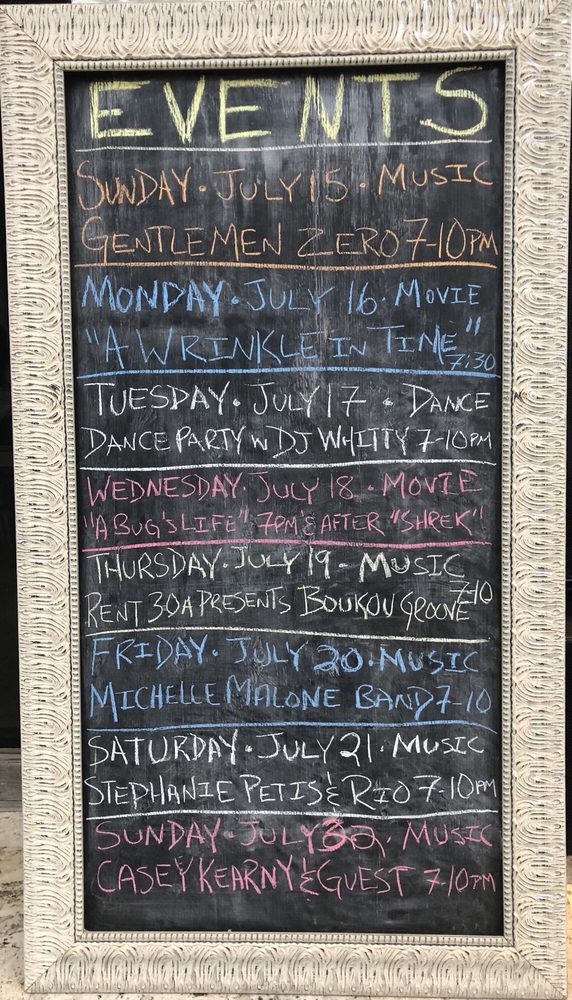 EVENTS
SUNDAY • JULY 15 • MUSIC
GENTLEMEN ZERO 7-10PM
MONDAY • JULY 16 • MOVIE
"A WRINKLE IN TIME" 7:30
TUESDAY • JULY 17 • DANCE
DANCE PARTY W DJ WHITTY 7-10PM
WEDNESDAY • JULY 18 • MOVIE
"A BUG'S LIFE" 7PM & AFTER "SHREK"
THURSDAY • JULY 19 - MUSIC
RENT 30A PRESENTS BOUKOU GROOVE 7-10
FRIDAY • JULY 20 • MUSIC
MICHELLE MALONE BAND 7-10
SATURDAY • JULY 21 • MUSIC
STEPHANIE PETIS & RIO 7-10PM
SUNDAY • JULY 22 • MUSIC
CASEY KEARNY & GUEST 7-10PM